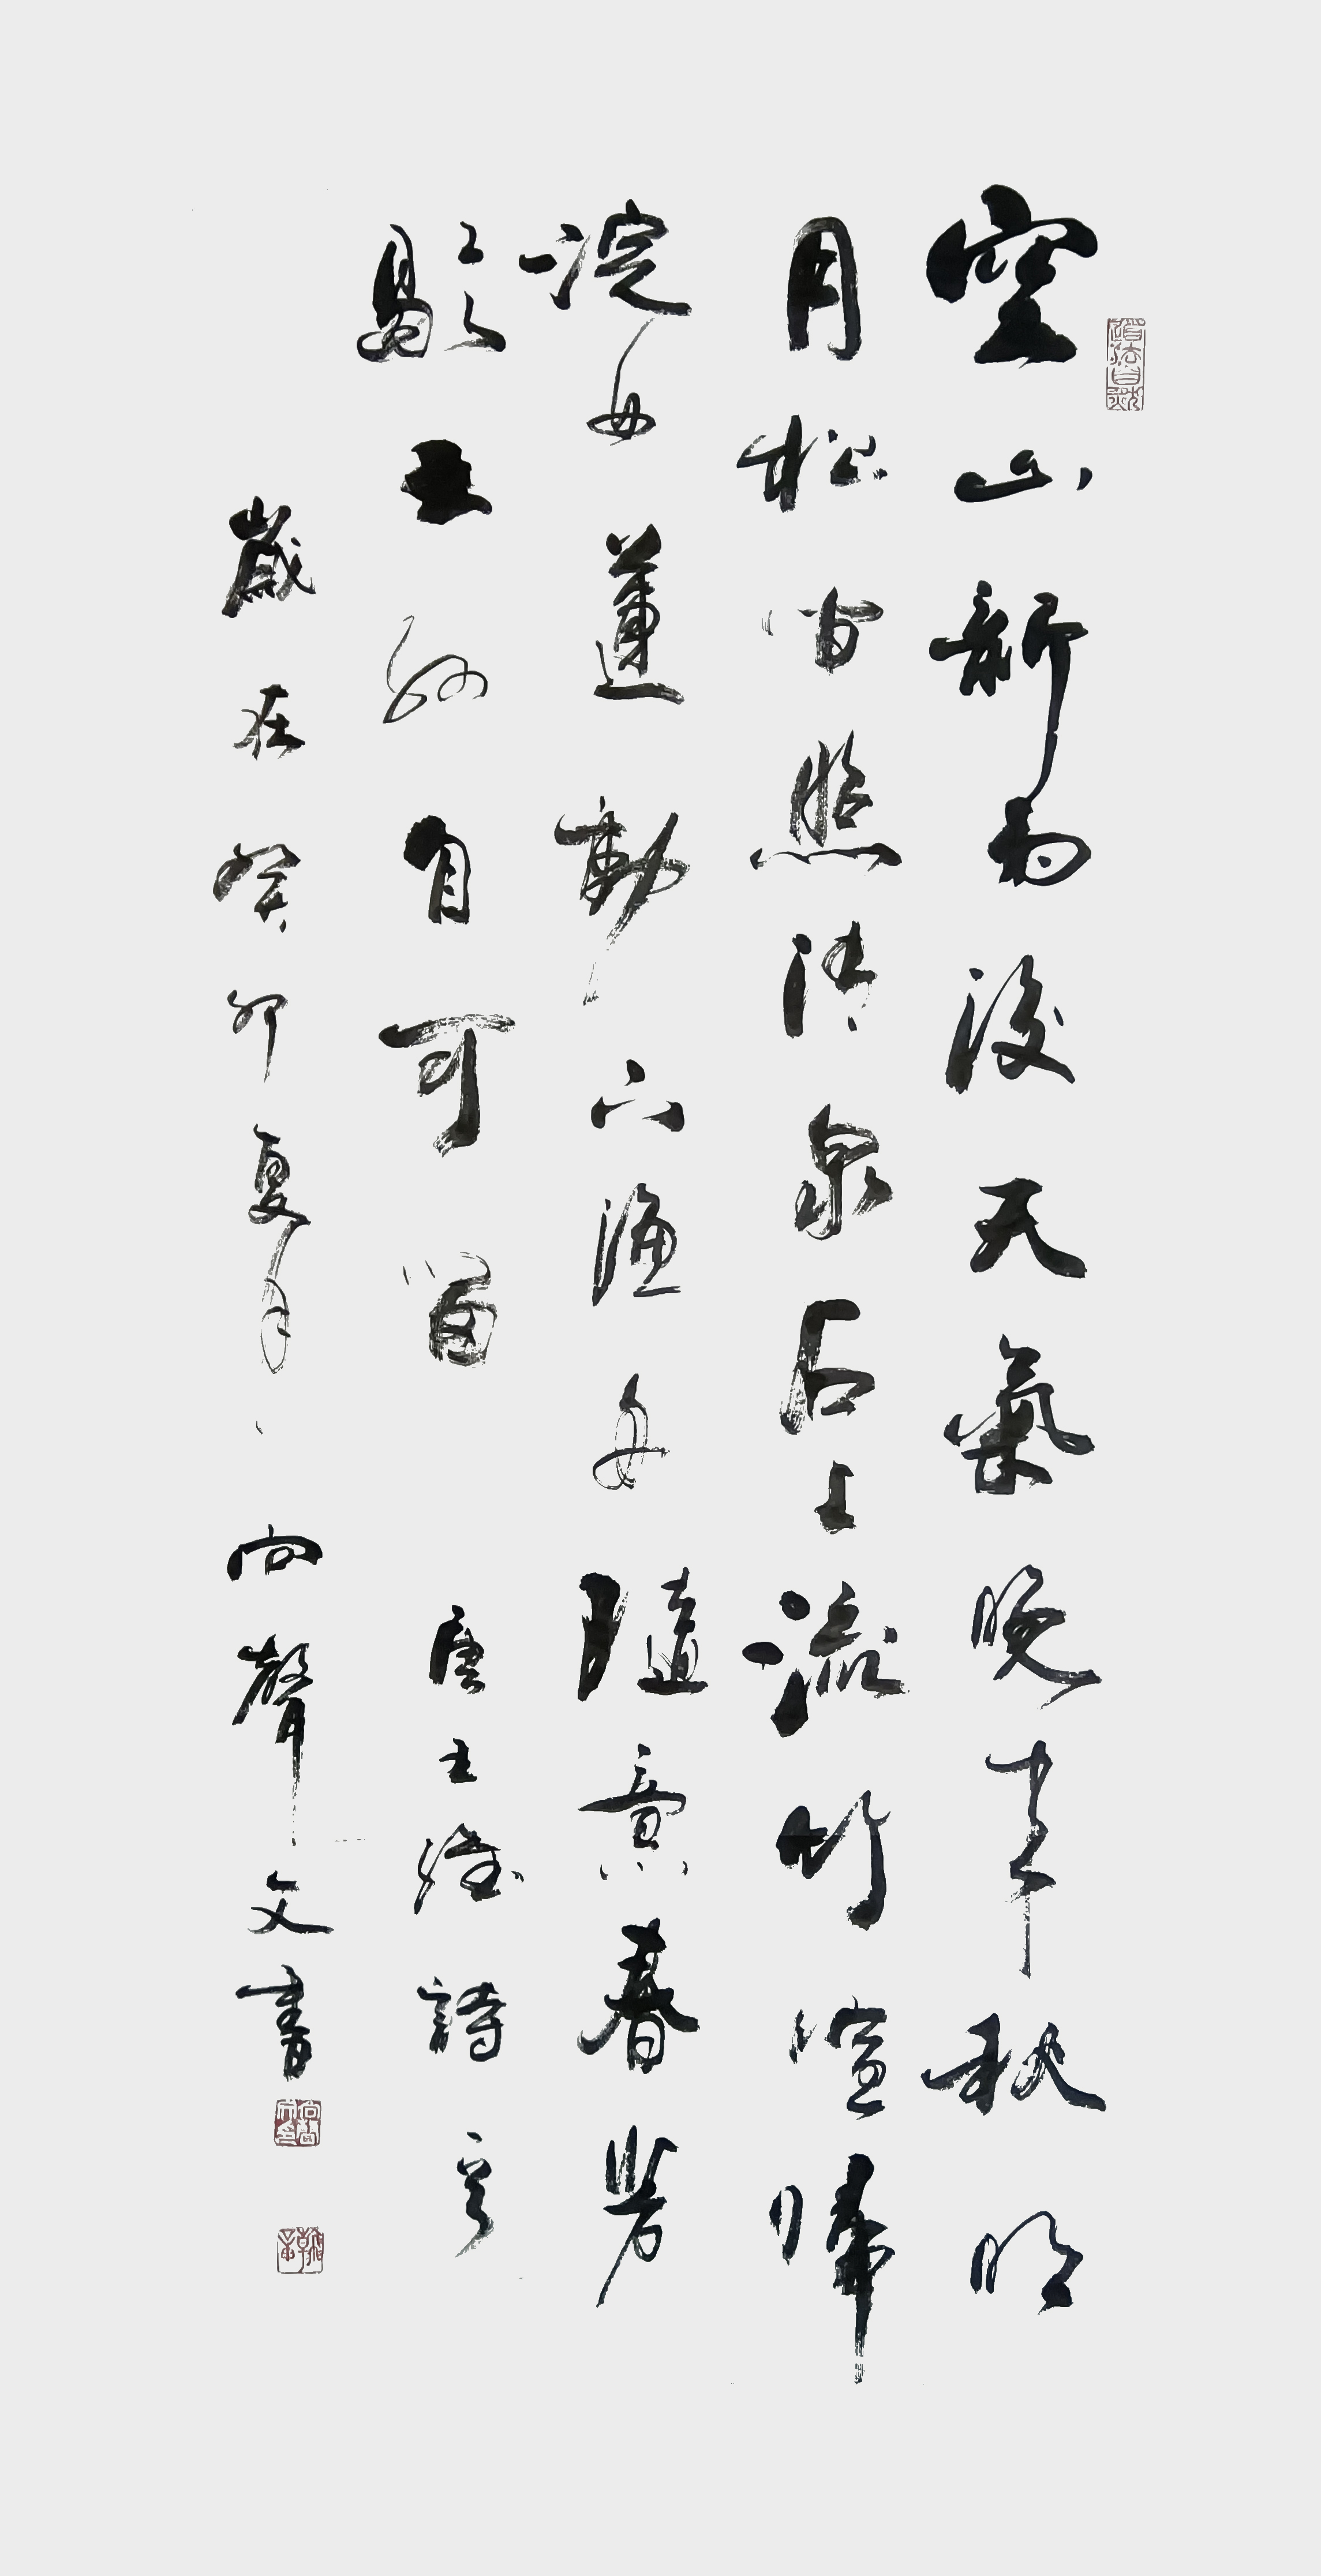 道法自然
空山新雨後天氣晚來秋明
月松間照清泉石上流竹喧歸
浣女蓮動下漁舟隨意春芳
歇王孫自可留 唐王維詩
歲在癸卯夏 向聲文書